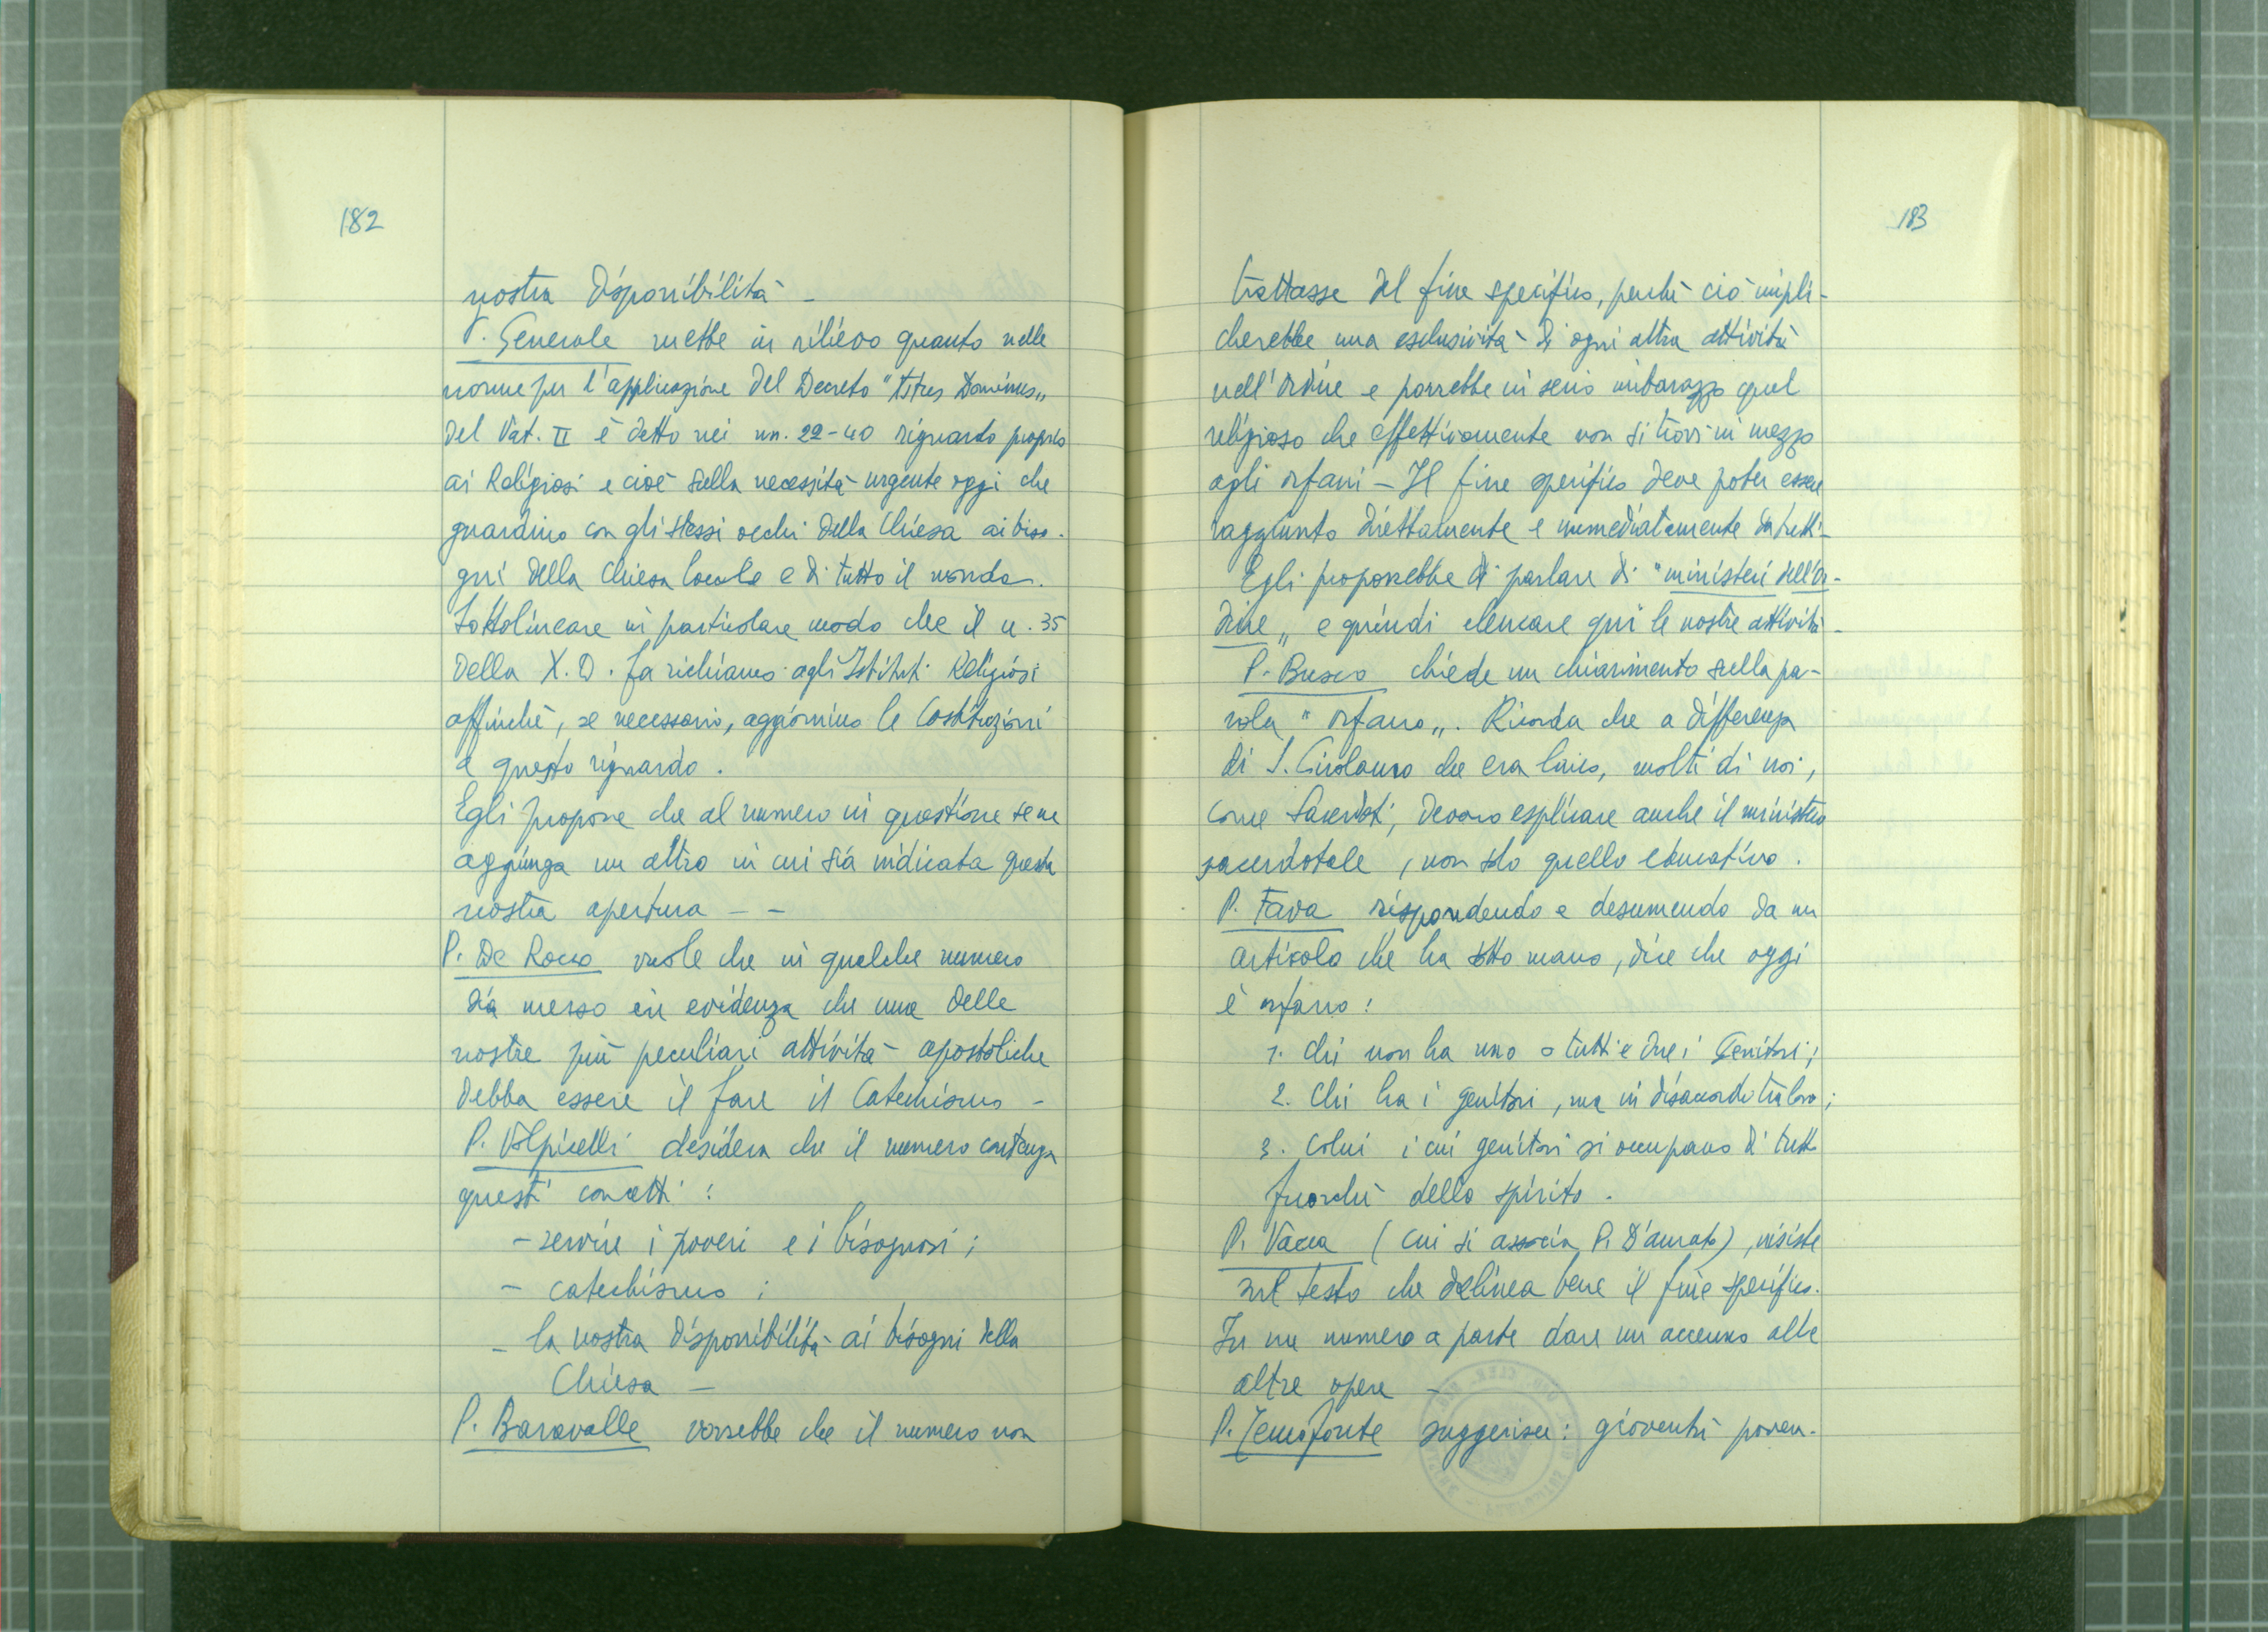 182
nostra disponibilità -
P. Generale mette in rilievo quanto nelle
norme per l'applicazione del Decreto "
del Vat. II è detto nei nn. 22-40 riguardo proprio
ai Religiosi e cioè sulla necessità urgente oggi che
guardino con gli stessi occhi della Chiesa ai biso-
gni della Chiesa locale e di tutto il mondo.
Sottolineare in particolare modo che il n. 35
della X.D. fa richiamo agli Istituti Religiosi
affinchè, se necessario, aggiornino le Costituzioni
a questo riguardo.
Egli propone che al numero in questione se ne
aggiunga un altro in cui sia indicata questa
nostra apertura - -
P. De Rocco vuole che in qualche numero
sia messo in evidenza che una delle
nostre più peculiari attività apostoliche
debba essere il fare il Catechismo -
P. Volpicelli desidera che il numero contenga
questi concetti:
- servire i poveri e i bisognosi;
- catechismo;
- la nostra disponibilità ai bisogni della
Chiesa -
P. Baravalle vorrebbe che il numero non
183
trattasse del fine specifico, perchè ciò impli-
cherebbe una esclusività di ogni altra attività
nell'Ordine e porrebbe in serio imbarazzo quel
religioso che effettivamente non si trovi in mezzo
agli orfani - Il fine specifico deve poter essere
raggiunto direttamente e immediatamente da tutti -
Egli proporrebbe di parlare di "ministeri dell'Or-
dine" e quindi elencare qui le nostre attività -
P. Busco chiede un chiarimento sulla pa-
rola "orfano". Ricorda che a differenza
di S. Girolamo che era laico, molti di noi,
come Sacerdoti, devono esplicare anche il ministero
sacerdotale, non solo quello educativo.
P. Fava rispondendo e desumendo da un
articolo che ha sotto mano, dice che oggi
è orfano:
1. Chi non ha uno o tutti e due i Genitori;
2. Chi ha i genitori, ma in disaccordo tra loro;
3. Colui i cui genitori si occupano di tutto
fuorchè dello spirito.
P. Vacca (cui si associa P. D'Amato), insiste
sul testo che delinea bene il fine specifico.
In un numero a parte dare un accenno alle
altre opere -
P. Temofonte suggerisce: gioventù povera-